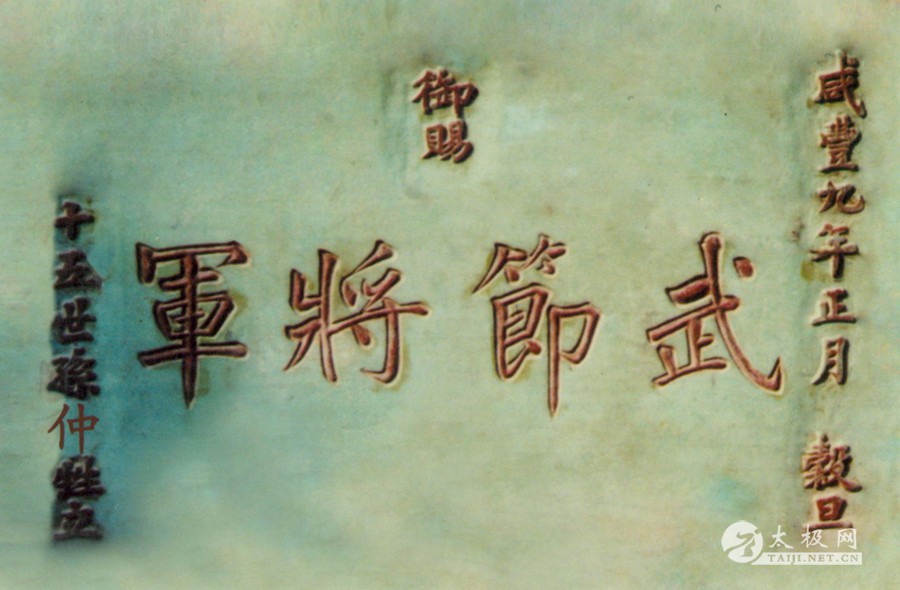 咸豐九年正月 穀旦
御賜
武節將軍
十五世孫仲甡立
太极网
TAIJI.NET.CN